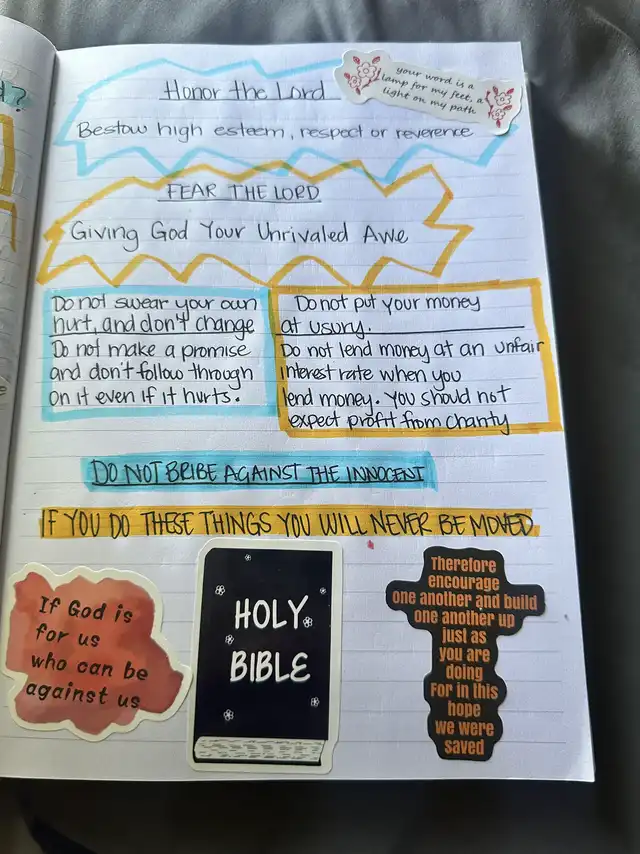 d?
Honor the Lord
your word is a
lamp for my feet, a
light on my path
Bestow high esteem, respect or reverence
FEAR THE LORD
Giving God Your Unrivaled Awe
Do not swear your own
hurt, and don't change
Do not make a promise
and don't follow through
on it even if it hurts.
Do not put your money
at usury.
Do not lend money at an unfair
interest rate when you
lend money. You should not
expect profit from charity
DO NOT BRIBE AGAINST THE INNOCENT
IF YOU DO THESE THINGS YOU WILL NEVER BE MOVED
If God is
for us
who can be
against us
HOLY
BIBLE
Therefore
encourage
one another and build
one another up
just as
you are
doing
For in this
hope
we were
saved